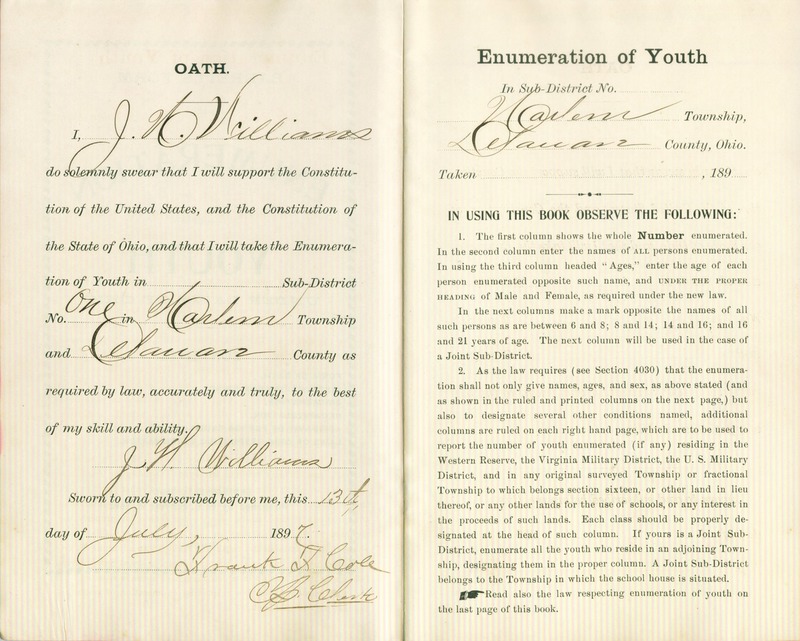 OATH.
I, J. H. Williams
do solemnly swear that I will support the Constitu-
tion of the United States, and the Constitution of
the State of Ohio, and that I will take the Enumera-
tion of Youth in Sub-District
No. One in Harlem Township
and County as
required by law, accurately and truly, to the best
of my skill and ability.
J H. Williams
Sworn to and subscribed before me, this 13th
day of July, 1897.
Frank F Cole
Clerk
Enumeration of Youth
In Sub-District No.
Harlem Township,
County, Ohio.
Taken , 189
IN USING THIS BOOK OBSERVE THE FOLLOWING:
1. The first column shows the whole Number enumerated.
In the second column enter the names of ALL persons enumerated.
In using the third column headed "Ages," enter the age of each
person enumerated opposite such name, and UNDER THE PROPER
HEADING of Male and Female, as required under the new law.
In the next columns make a mark opposite the names of all
such persons as are between 6 and 8; 8 and 14; 14 and 16; and 16
and 21 years of age. The next column will be used in the case of
a Joint Sub-District.
2. As the law requires (see Section 4030) that the enumera-
tion shall not only give names, ages, and sex, as above stated (and
as shown in the ruled and printed columns on the next page,) but
also to designate several other conditions named, additional
columns are ruled on each right hand page, which are to be used to
report the number of youth enumerated (if any) residing in the
Western Reserve, the Virginia Military District, the U. S. Military
District, and in any original surveyed Township or fractional
Township to which belongs section sixteen, or other land in lieu
thereof, or any other lands for the use of schools, or any interest in
the proceeds of such lands. Each class should be properly de-
signated at the head of such column. If yours is a Joint Sub-
District, enumerate all the youth who reside in an adjoining Town-
ship, designating them in the proper column. A Joint Sub-District
belongs to the Township in which the school house is situated.
Read also the law respecting enumeration of youth on
the last page of this book.